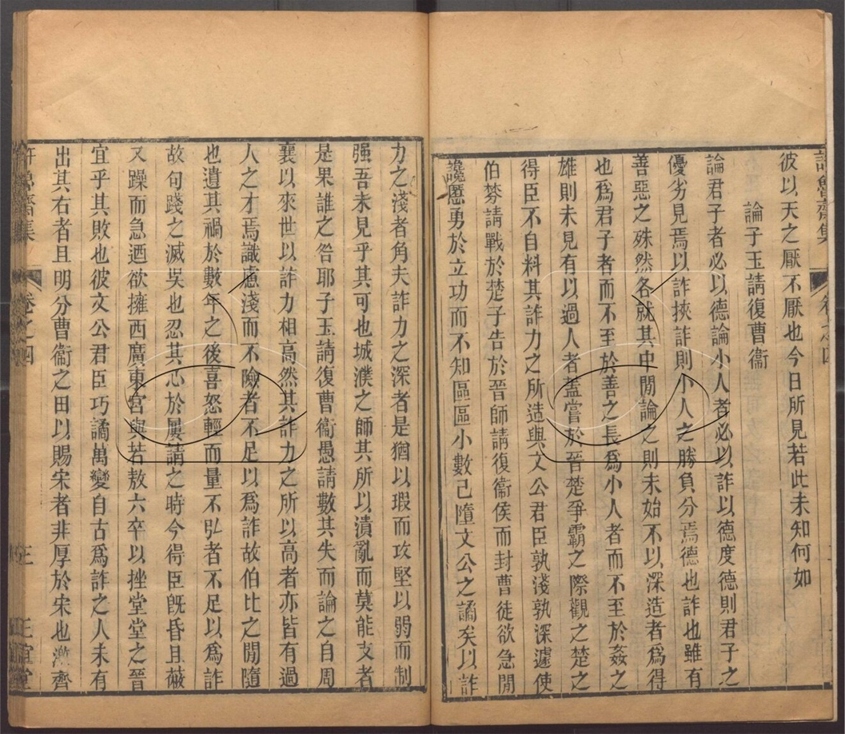 彼以天之厭不厭也今日所見若此未知何如
論子玉請復曹衞
論君子者必以德論小人者必以詐以德度德則君子之
優劣見焉以詐挾詐則小人之勝負分焉德也詐也雖有
善惡之殊然各就其中閒論之則未始不以深造者爲得
也爲君子者而不至於善之長爲小人者而不至於姦之
雄則未見有以過人者盖嘗於晉楚爭霸之際觀之楚之
得臣不自料其詐力之所造與文公君臣孰淺孰深遽使
伯棼請戰於楚子告於晉師請復衞侯而封曹徒欲急閒
讒慝勇於立功而不知區區小數已墮文公之譎矣以詐
力之淺者角夫詐力之深者是猶以瑕而攻堅以弱而制
强吾未見乎其可也城濮之師其所以潰亂而莫能支者
是果誰之咎耶子玉請復曹衞愚請數其失而論之自周
襄以來世以詐力相高然其詐力之所以高者亦皆有過
人之才焉識慮淺而不險者不足以爲詐故伯比之閒隨
也遺其禍於數年之後喜怒輕而量不弘者不足以爲詐
故句踐之滅吳也忍其心於屢請之時今得臣旣昏且蔽
又躁而急迺欲擁西廣東宮與若敖六卒以挫堂堂之晉
宜乎其敗也彼文公君臣巧譎萬變自古爲詐之人未有
出其右者且明分曹衞之田以賜宋者非厚於宋也激齊
許魯齋集 卷之四 三 正誼堂